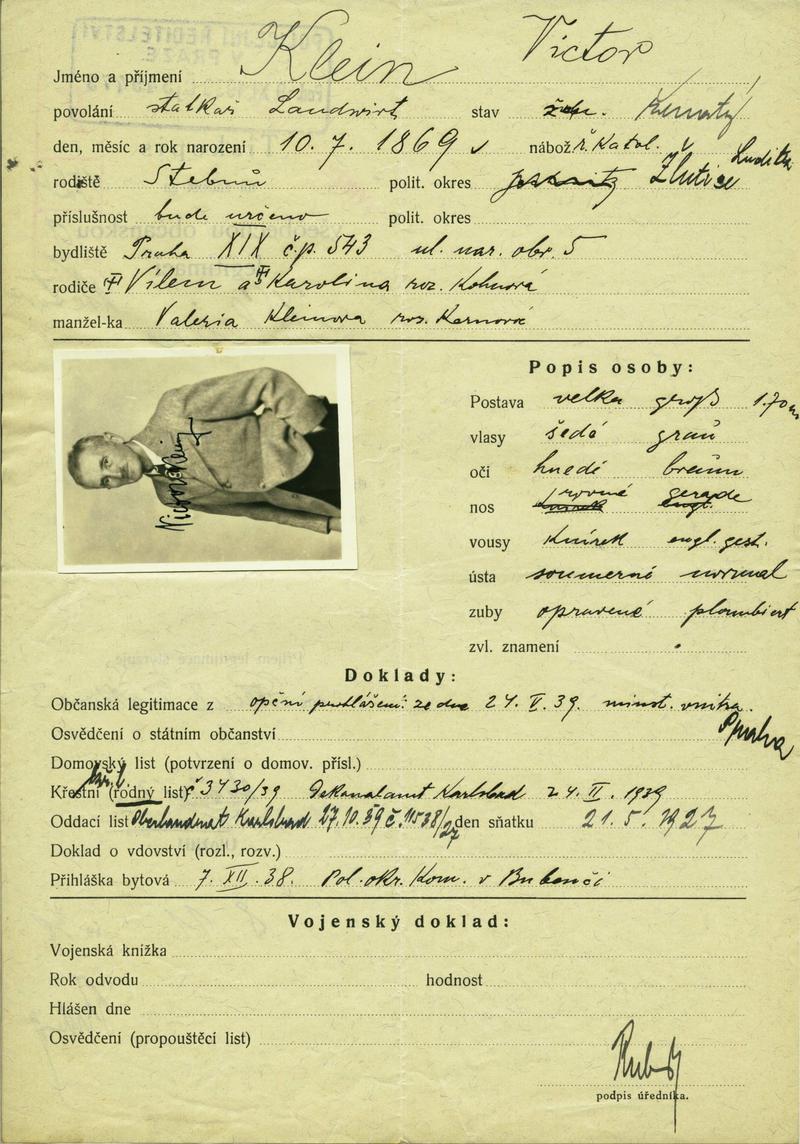 Klein Victor
Jméno a příjmení
povolání statkář Landwirt stav žen.
den, měsíc a rok narození 10. 7. 1869 nábož. ř. Katol.
rodiště Stebnu polit. okres Žlutice Luditz
příslušnost bude určeno polit. okres
bydliště Praha XIX č.p. 543 ul. nar. obr. 5
rodiče Vilem a Karolina roz. Kohnová
manžel-ka Valeria Kleinova roz. Kernová
Popis osoby:
Postava velka groß 1.70 m
vlasy šedé grau
očí hnedé braun
nos rovné gerade
vousy Knírek engl. gest.
ústa soumerné normal
zuby opravené plombiert
zvl. znamení
Victor Klein
Doklady:
Občanská legitimace z opční prohlášení ze dne 24. V. 39. minist. vnitra. Praha
Osvědčení o státním občanství
Domovský list (potvrzení o domov. přísl.)
Křestní (rodný list) č 3430/39 Dekanalamt Karlsbad 24. II. 1939
Oddací list Oberlandrat Karlsbad 27.10.39 den sňatku 21. 5. 1927
Doklad o vdovství (rozl., rozv.)
Přihláška bytová 7. XII. 38. Pol. okr. Kom. v Bubenči
Vojenský doklad:
Vojenská knížka
Rok odvodu hodnost
Hlášen dne
Osvědčení (propouštěcí list)
podpis úředníka.